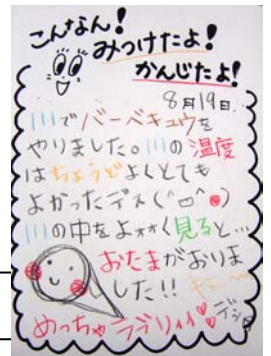 こんなん！
みつけたよ！
かんじたよ！
8月19日.
川でバーベキュウを
やりました。川の温度
はちょうどよくとても
よかったデス(^ㅁ^●)
川の中をよォォく見ると…
おたまがおりま
した!! キャ〜
めっちゃラブリィィ♡♡デシ